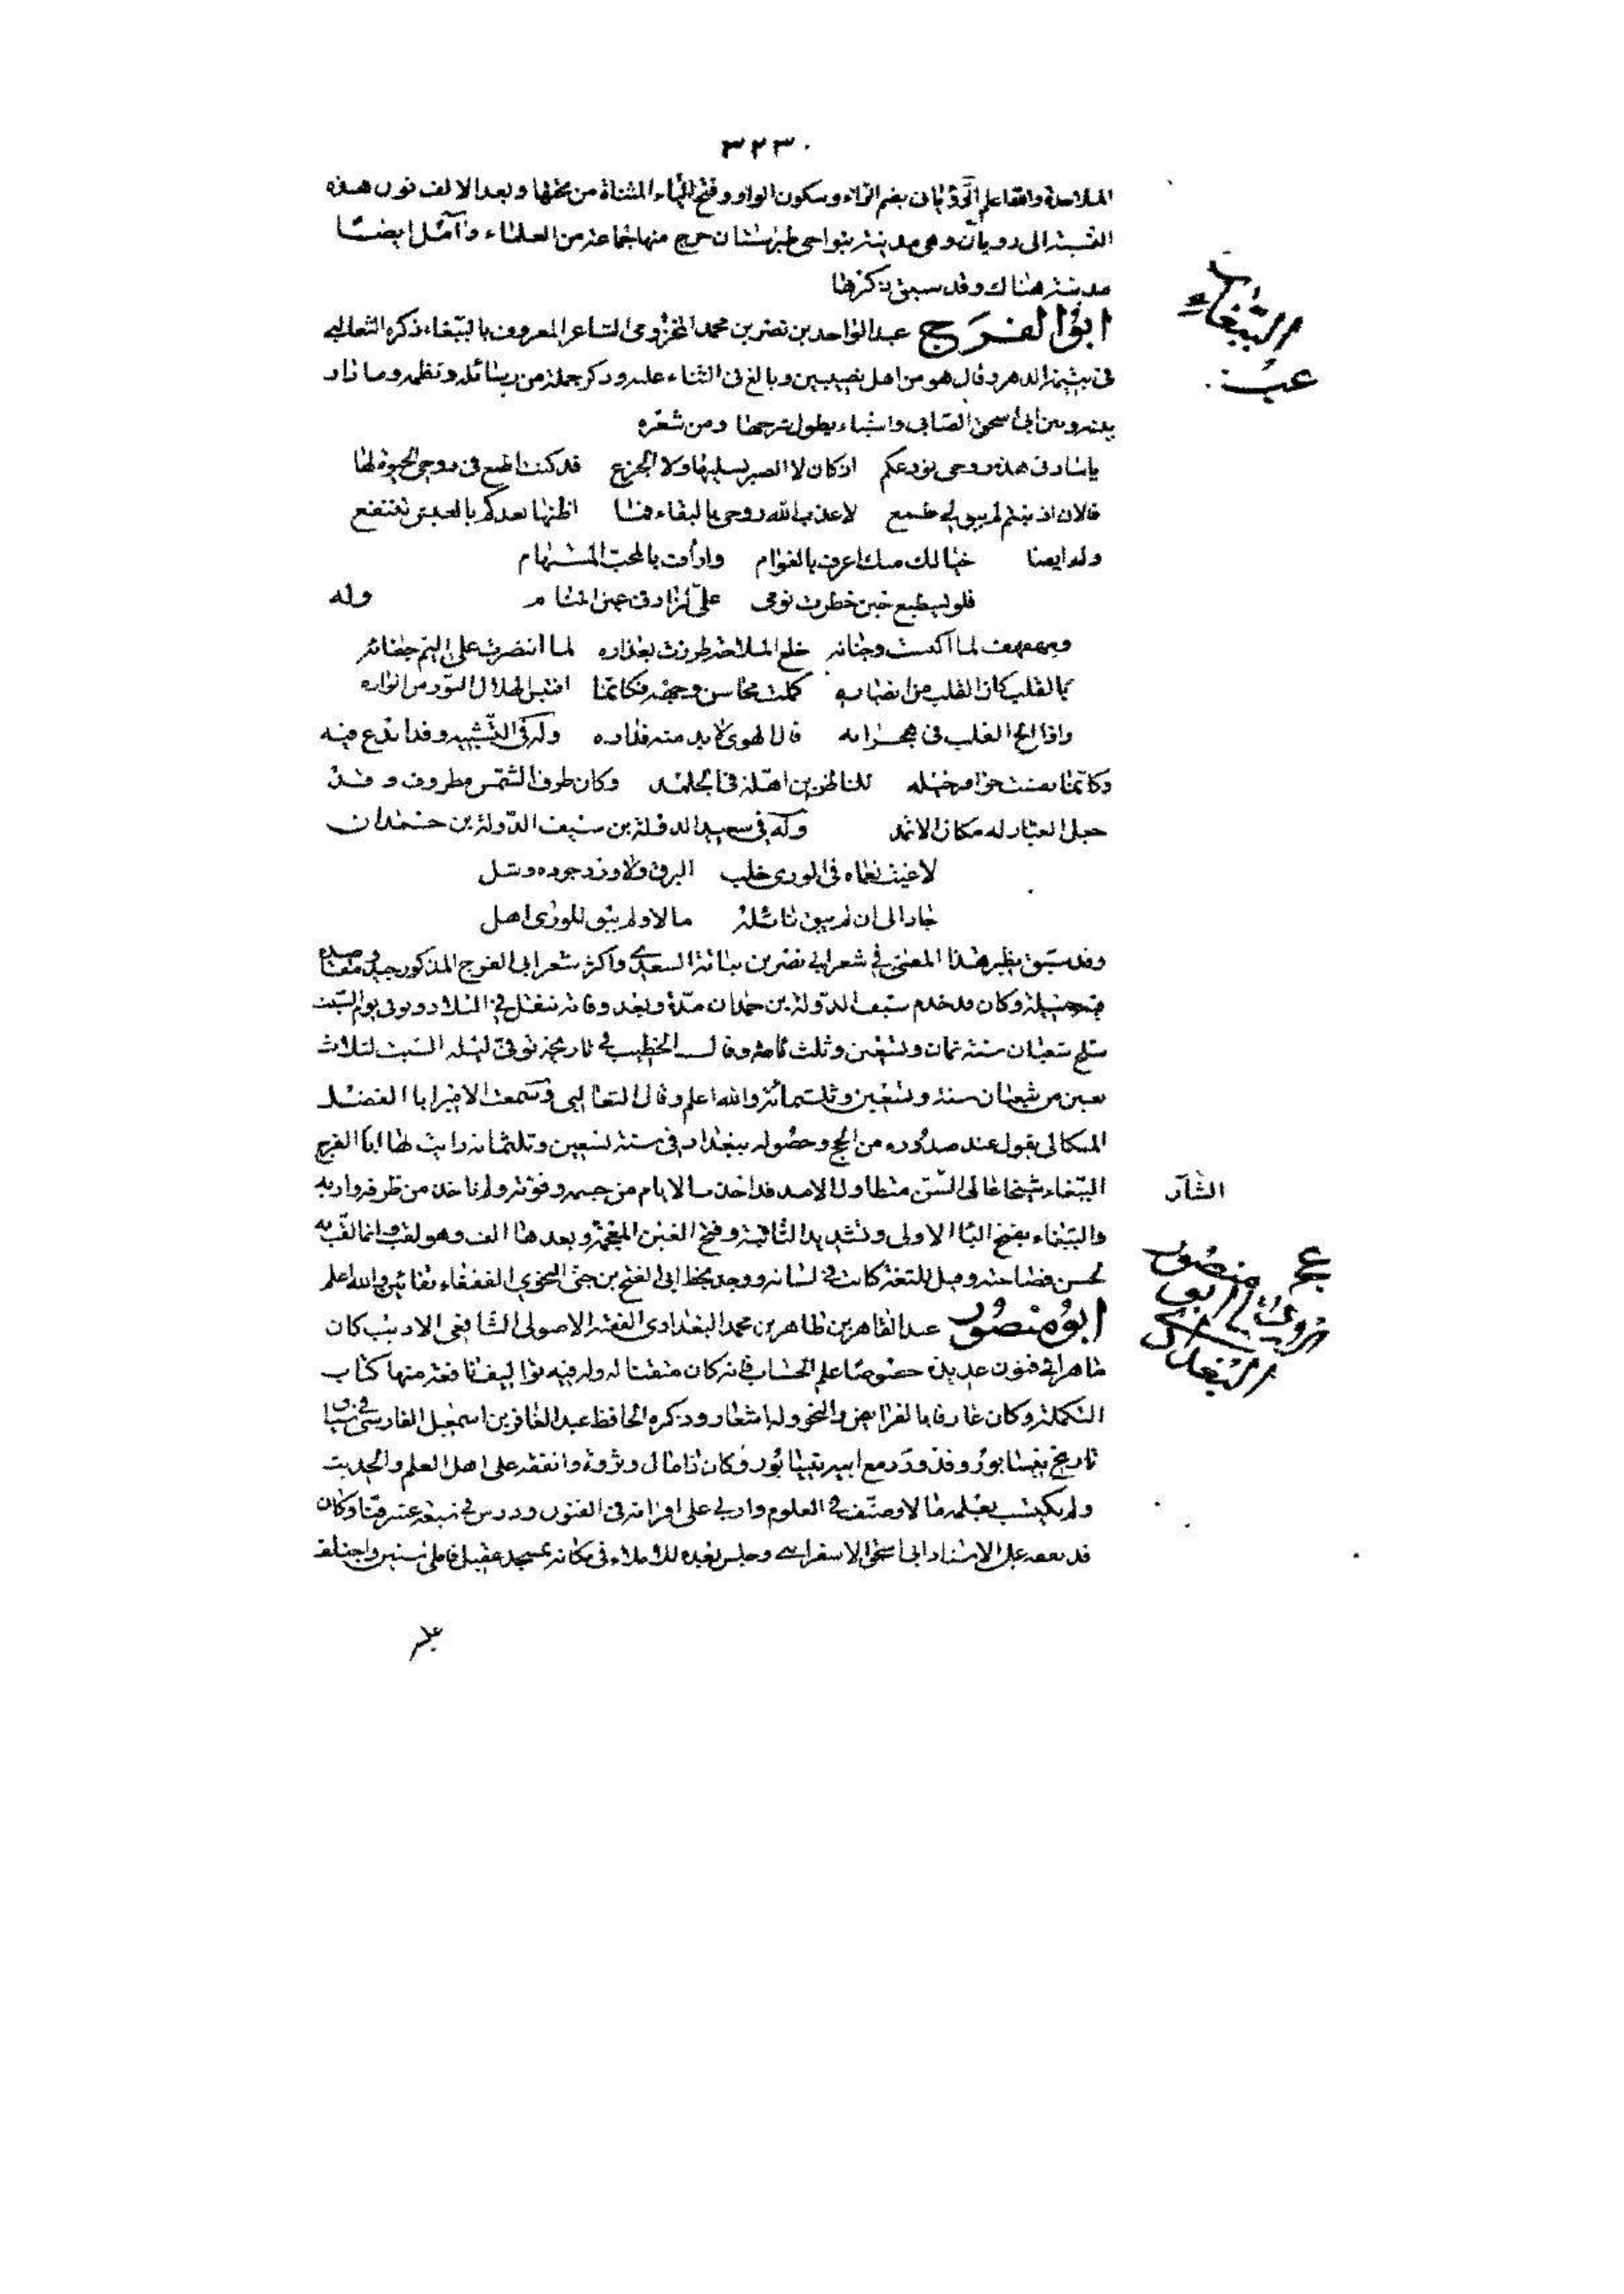 ٣٢٣٠
الملاحدة والله اعلم الرُّوْيَاني بضم الراء وسكون الواو وفتح الياء المثناة من تحتها وبعد الالف نون هذه
النسبة الى رويان وهى مدينة بنواحى طبرستان خرج منها جماعة من العلماء وآمل ايضا
مدينة هناك وقد سبق ذكرها
ابو الفرج عبد الواحد بن نصر بن محمد المخزومى الشاعر المعروف بالببغاء ذكره الثعالبى
فى يتيمة الدهر وقال هو من اهل نصيبين وبالغ فى الثناء عليه وذكر جملة من رسائله ونظمه وما دار
بينه وبين ابى اسحق الصابى واشياء يطول شرحها ومن شعره
يا سادتى هذه روحى تودعكم اذ كان لا الصبر يسليها ولا الجزع قد كنت اطمع فى روح الحيوة لها
فالان اذ بنتم لم يبق لى طمع لا عذب الله روحى بالبقاء فما اظنها بعدكم بالعيش تنتفع
وله ايضا خيالك منك اعرف بالغرام وارأف بالمحب المستهام
فلو يسطيع حين حظرت نومى على لزارنى عين المنام وله
ومهفهف لما اكتست وجناته خلع الملاحة طرزت بعذاره لما انتصرت على اليم جفائه
بالقلب كان القلب من انصاره كملت محاسن وجهه فكانما اقتبس الهلال النور من انواره
واذا الح القلب فى هجرانه قال الهوى لا بد منه فداره وله فى التشبيه وقد ابدع فيه
وكانما نقشت حوافر خيله للناظرين اهلة فى الجلمد وكان طرف الشمس مطروف وقد
جعل الغبار له مكان الاثمد وله فى سعيد الدولة بن سيف الدولة بن حمدان
لا غيث نعماه فى الورى خلب البرق ولا ورد جوده وشل
جاد الى ان لم يبق نائله مالا ولم يبق للورى امل
وقد سبق نظير هذا المعنى فى شعر ابى نصر بن نباتة السعدى واكثر شعر ابى الفرج المذكور جيد ومقاصده
فيه جميلة وكان قد خدم سيف الدولة بن حمدان مدة وبعد وفاته تنقل فى البلاد وتوفى يوم السبت
سلخ شعبان سنة ثمان وتسعين وثلث مائة وقال الخطيب فى تاريخه توفى ليلة السبت لثلاث
بقين من شعبان سنة وتسعين وثلثمائة والله اعلم وقال الثعالبى وسمعت الامير ابا الفضل
الميكالى يقول عند صدوره من الحج وحصوله ببغداد فى سنة تسعين وثلثمائة رايت بها ابا الفرج
الببغاء شيخا عالى السن متطاول الامد قد اخذت الايام من جسمه وقوته ولم تاخذ من ظرفه وادبه
والببغاء بفتح البا الاولى وتشديد الثانية وفتح الغين المعجمة وبعدها الف وهو لقب وانما لقب به
لحسن فصاحته وقيل للثغة كانت فى لسانه ووجد بخط ابى الفتح بن جنى النحوى الففغاء بفائين والله اعلم
ابو منصور عبد القاهر بن طاهر بن محمد البغدادى الفقيه الاصولى الشافعى الاديب كان
ماهرا فى فنون عديدة خصوصا علم الحساب فانه كان متقنا له وله فيه تواليف نافعة منها كتاب
التكملة وكان عارفا بالفرائض والنحو وله اشعار وذكره الحافظ عبد الغافر بن اسمعيل الفارسى فى سياق
تاريخ نيسابور وقد ورد مع ابيه نيسابور وكان ذا مال وثروة وانفقه على اهل العلم والحديث
ولم يكتسب بعلمه مالا وصنف فى العلوم واربى على اقرانه فى الفنون ودرس فى سبعة عشر فنا وكان
قد تفقه على الاستاد ابى اسحق الاسفراينى وجلس بعده للاملاء فى مكانه بمسجد عقيل فاملى سنين واختلف
الببغاء
عبد
الشآر
البغدادى ابو منصور